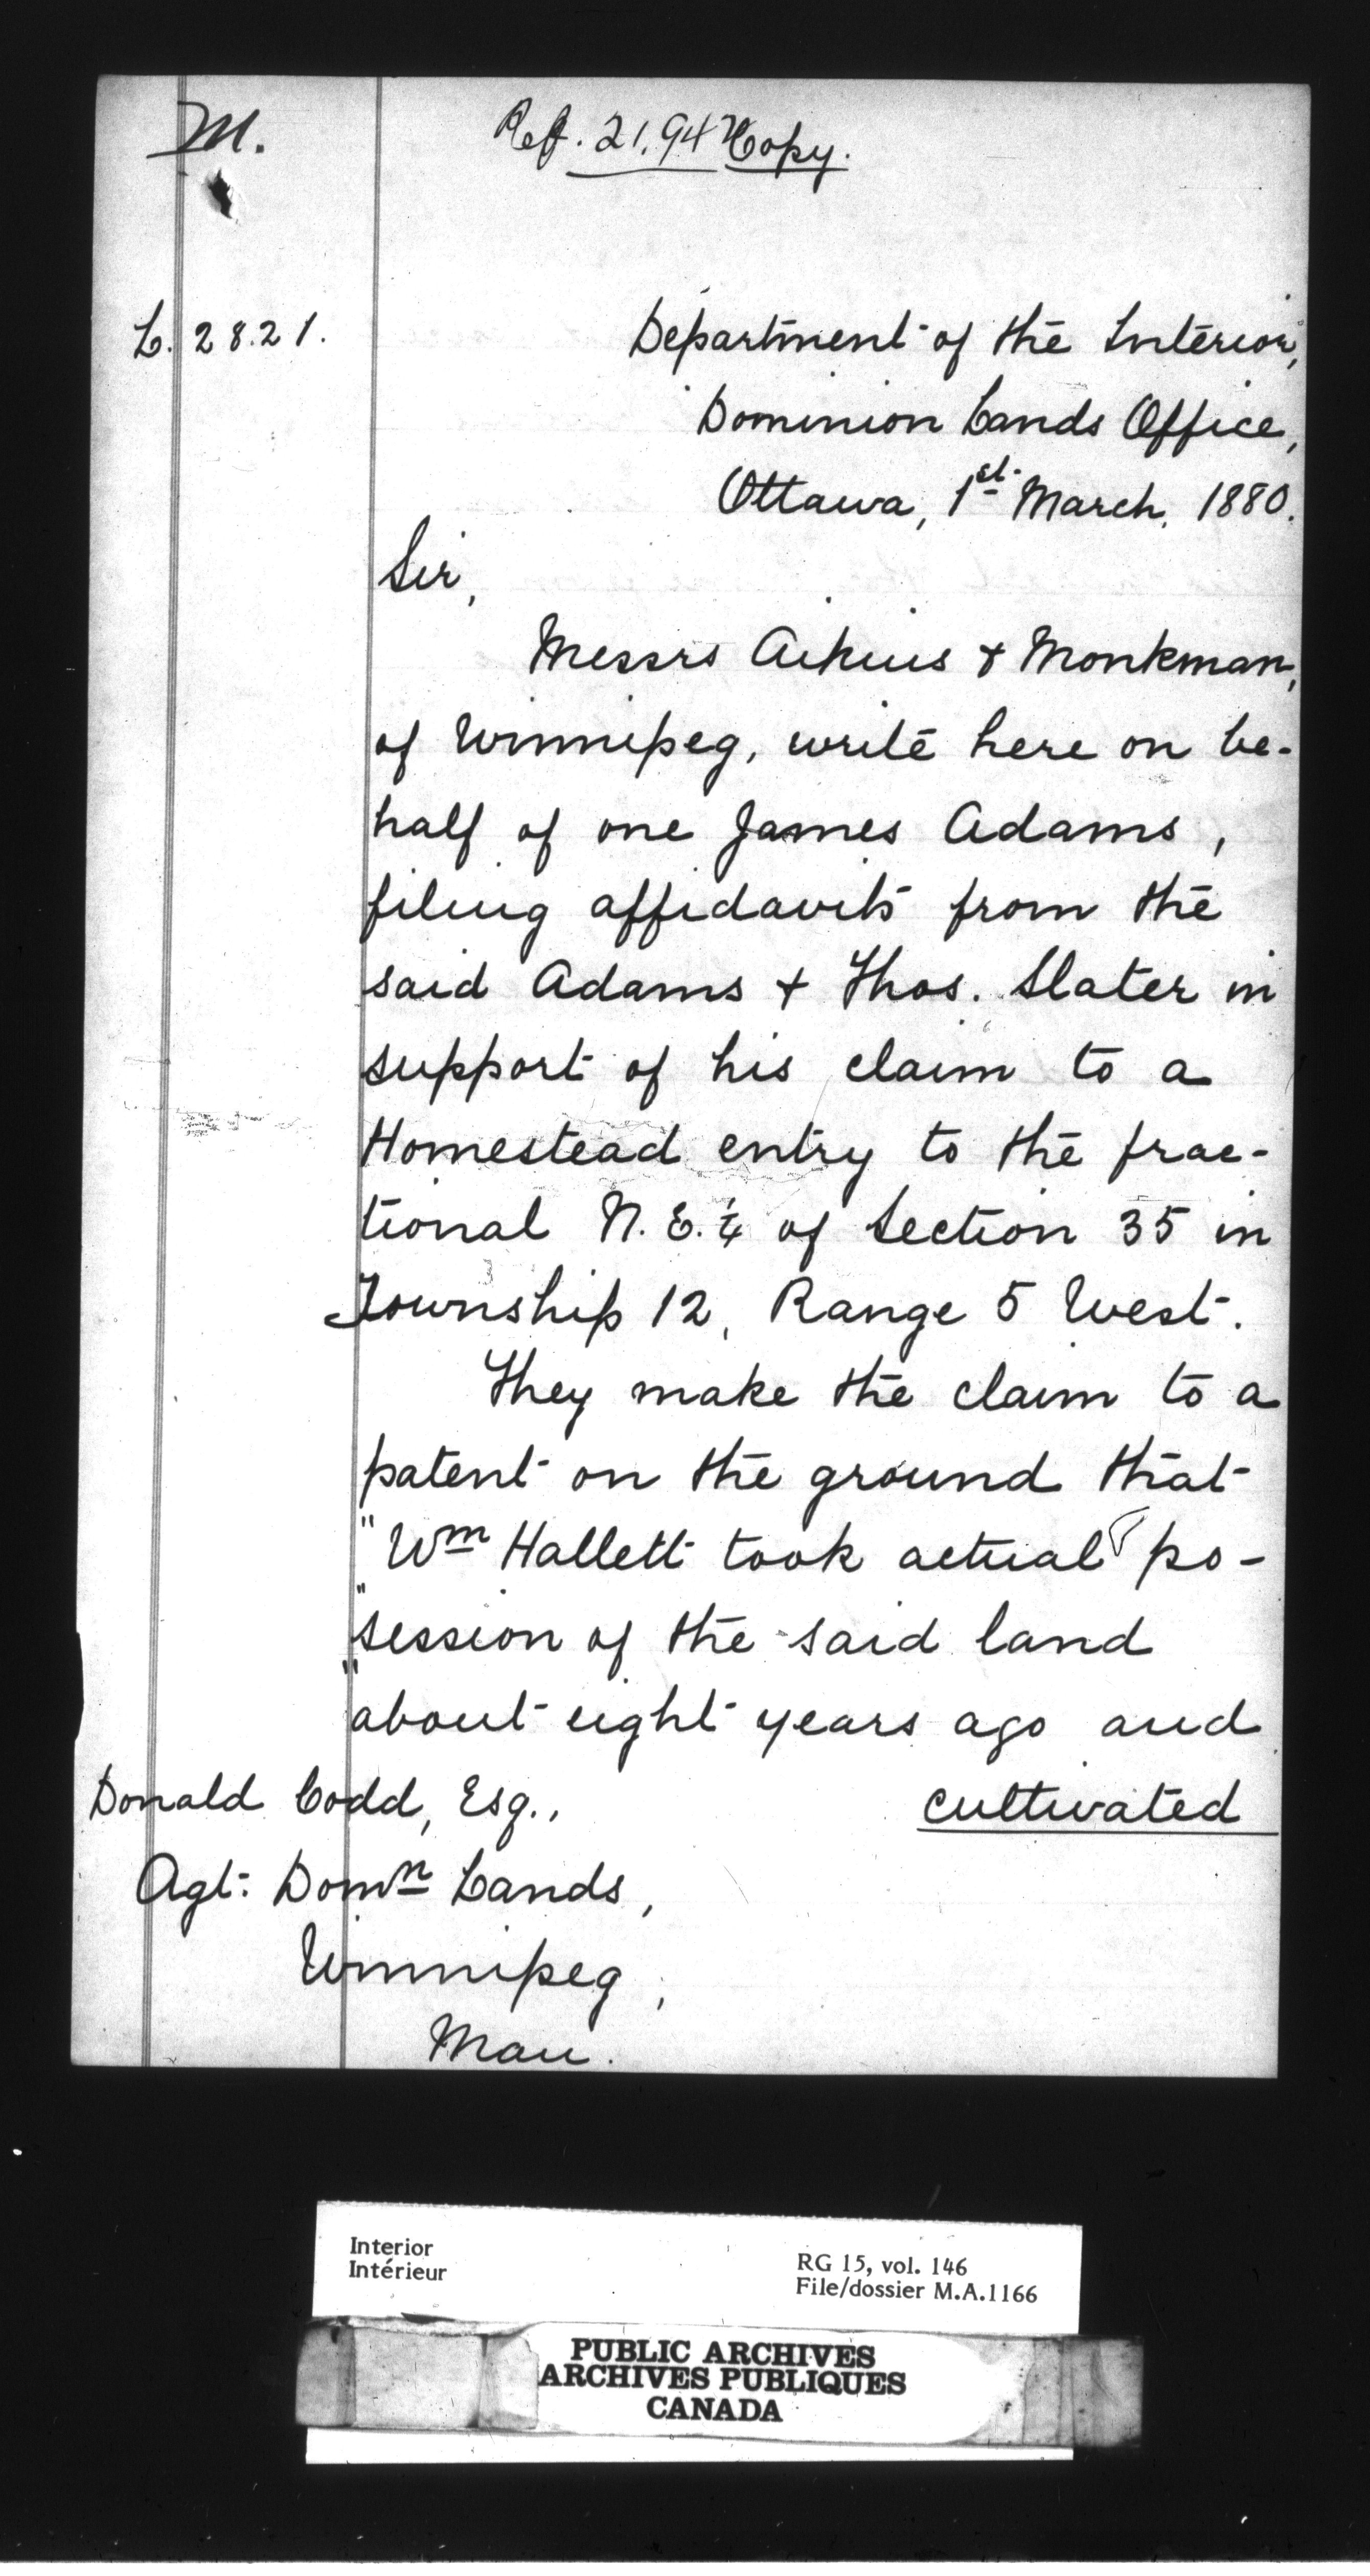 M.
Ref. 21.94 Copy.
L. 2821.
Department of the Interior,
Dominion Lands Office,
Ottawa, 1st March, 1880.
Sir,
Messrs Aikins + Monkman,
of Winnipeg, write here on be-
half of one James Adams,
filing affidavits from the
said Adams + Thos. Slater in
support of his claim to a
Homestead entry to the frac-
tional N.E. ¼ of Section 35 in
Township 12, Range 5 West.
They make the claim to a
patent on the ground that
"Wm Hallett took actual po-
"session of the said land
"about eight years ago and
cultivated
Donald Codd, Esq.,
Agt. Domn Lands,
Winnipeg,
Man.
Interior
Intérieur
RG 15, vol. 146
File/dossier M.A.1166
PUBLIC ARCHIVES
ARCHIVES PUBLIQUES
CANADA